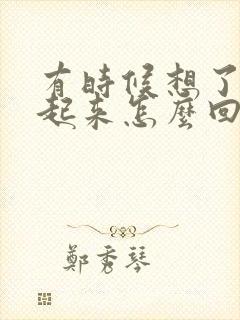 有時候想了
起來怎麼回
鄭秀琴